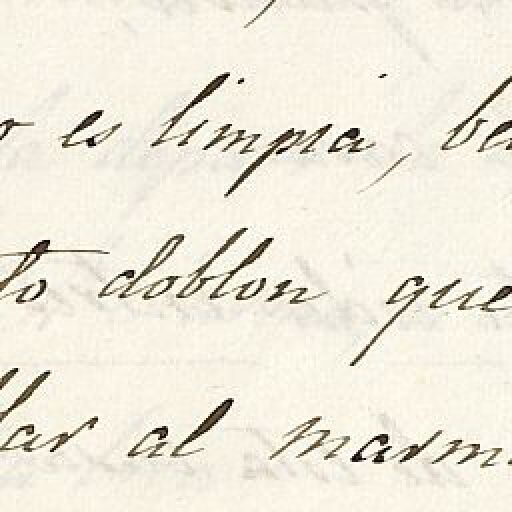 es limpia, be
to doblon que
llar al marm